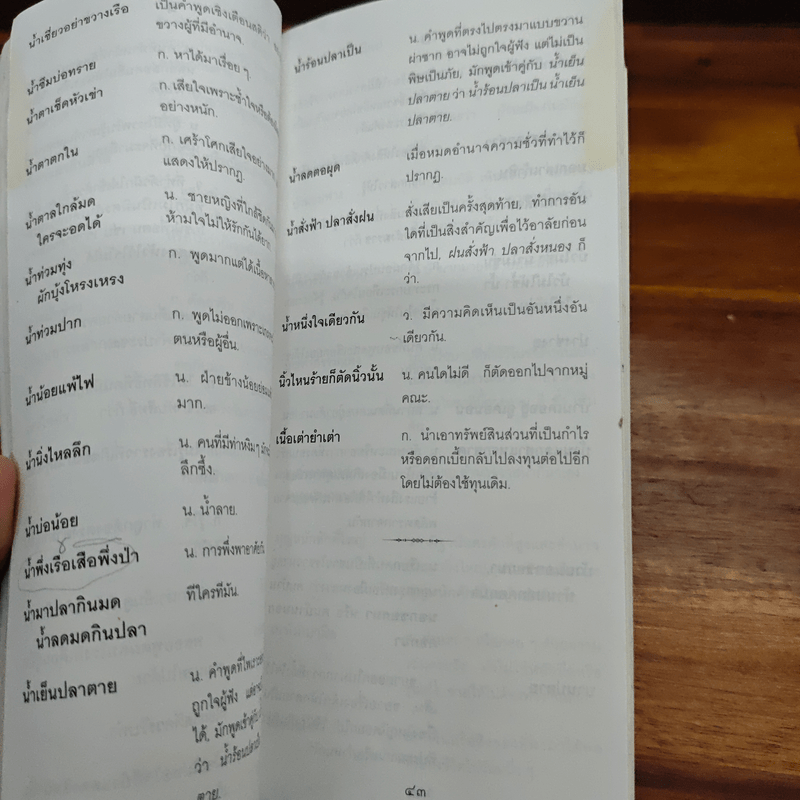 น้ำเชี่ยวอย่าขวางเรือ
เป็นคำพูดเชิงเตือนสติว่า
ขวางผู้ที่มีอำนาจ.
น้ำซึมบ่อทราย
ก. หาได้มาเรื่อยๆ.
น้ำตาเช็ดหัวเข่า
ก. เสียใจเพราะช้ำใจ
อย่างหนัก.
น้ำตาตกใน
ก. เศร้าโศกเสียใจอย่าง
แสดงให้ปรากฏ.
น้ำตาลใกล้มด
น. ชายหญิงที่ใกล้ชิดกัน
ใครจะอดได้
ห้ามใจไม่ให้รักกันได้ยาก
น้ำท่วมทุ่ง
ก. พูดมากแต่ได้เนื้อ
ผักบุ้งโหรงเหรง
น้ำท่วมปาก
ก. พูดไม่ออกเพราะ
ตนหรือผู้อื่น.
น้ำน้อยแพ้ไฟ
น. ฝ่ายข้างน้อยย่อม
มาก.
น้ำนิ่งไหลลึก
น. คนที่มีท่าหงิมๆ มัก
ลึกซึ้ง.
น้ำบ่อน้อย
น. น้ำลาย.
น้ำพึ่งเรือเสือพึ่งป่า
น. การพึ่งพาอาศัย
น้ำมาปลากินมด
ทีใครทีมัน.
น้ำลดมดกินปลา
น้ำเย็นปลาตาย
น. คำพูดที่ไพเราะ
ถูกใจผู้ฟัง
ได้, มักพูดเข้าคู่กับ
ว่า น้ำร้อนปลาเป็น
ตาย.
น้ำร้อนปลาเป็น
น. คำพูดที่ตรงไปตรงมาแบบขวาน
ผ่าซาก อาจไม่ถูกใจผู้ฟัง แต่ไม่เป็น
พิษเป็นภัย, มักพูดเข้าคู่กับ น้ำเย็น
ปลาตาย ว่า น้ำร้อนปลาเป็น น้ำเย็น
ปลาตาย.
น้ำลดตอผุด
เมื่อหมดอำนาจความชั่วที่ทำไว้ก็
ปรากฏ.
น้ำสั่งฟ้า ปลาสั่งฝน
สั่งเสียเป็นครั้งสุดท้าย, ทำการอัน
ใดที่เป็นสิ่งสำคัญเพื่อไว้อาลัยก่อน
จากไป, ฝนสั่งฟ้า ปลาสั่งหนอง ก็
ว่า.
น้ำหนึ่งใจเดียวกัน
ว. มีความคิดเห็นเป็นอันหนึ่งอัน
เดียวกัน.
นิ้วไหนร้ายก็ตัดนิ้วนั้น
น. คนใดไม่ดี ก็ตัดออกไปจากหมู่
คณะ.
เนื้อเต่ายำเต่า
ก. นำเอาทรัพย์สินส่วนที่เป็นกำไร
หรือดอกเบี้ยกลับไปลงทุนต่อไปอีก
โดยไม่ต้องใช้ทุนเดิม.
๔๓